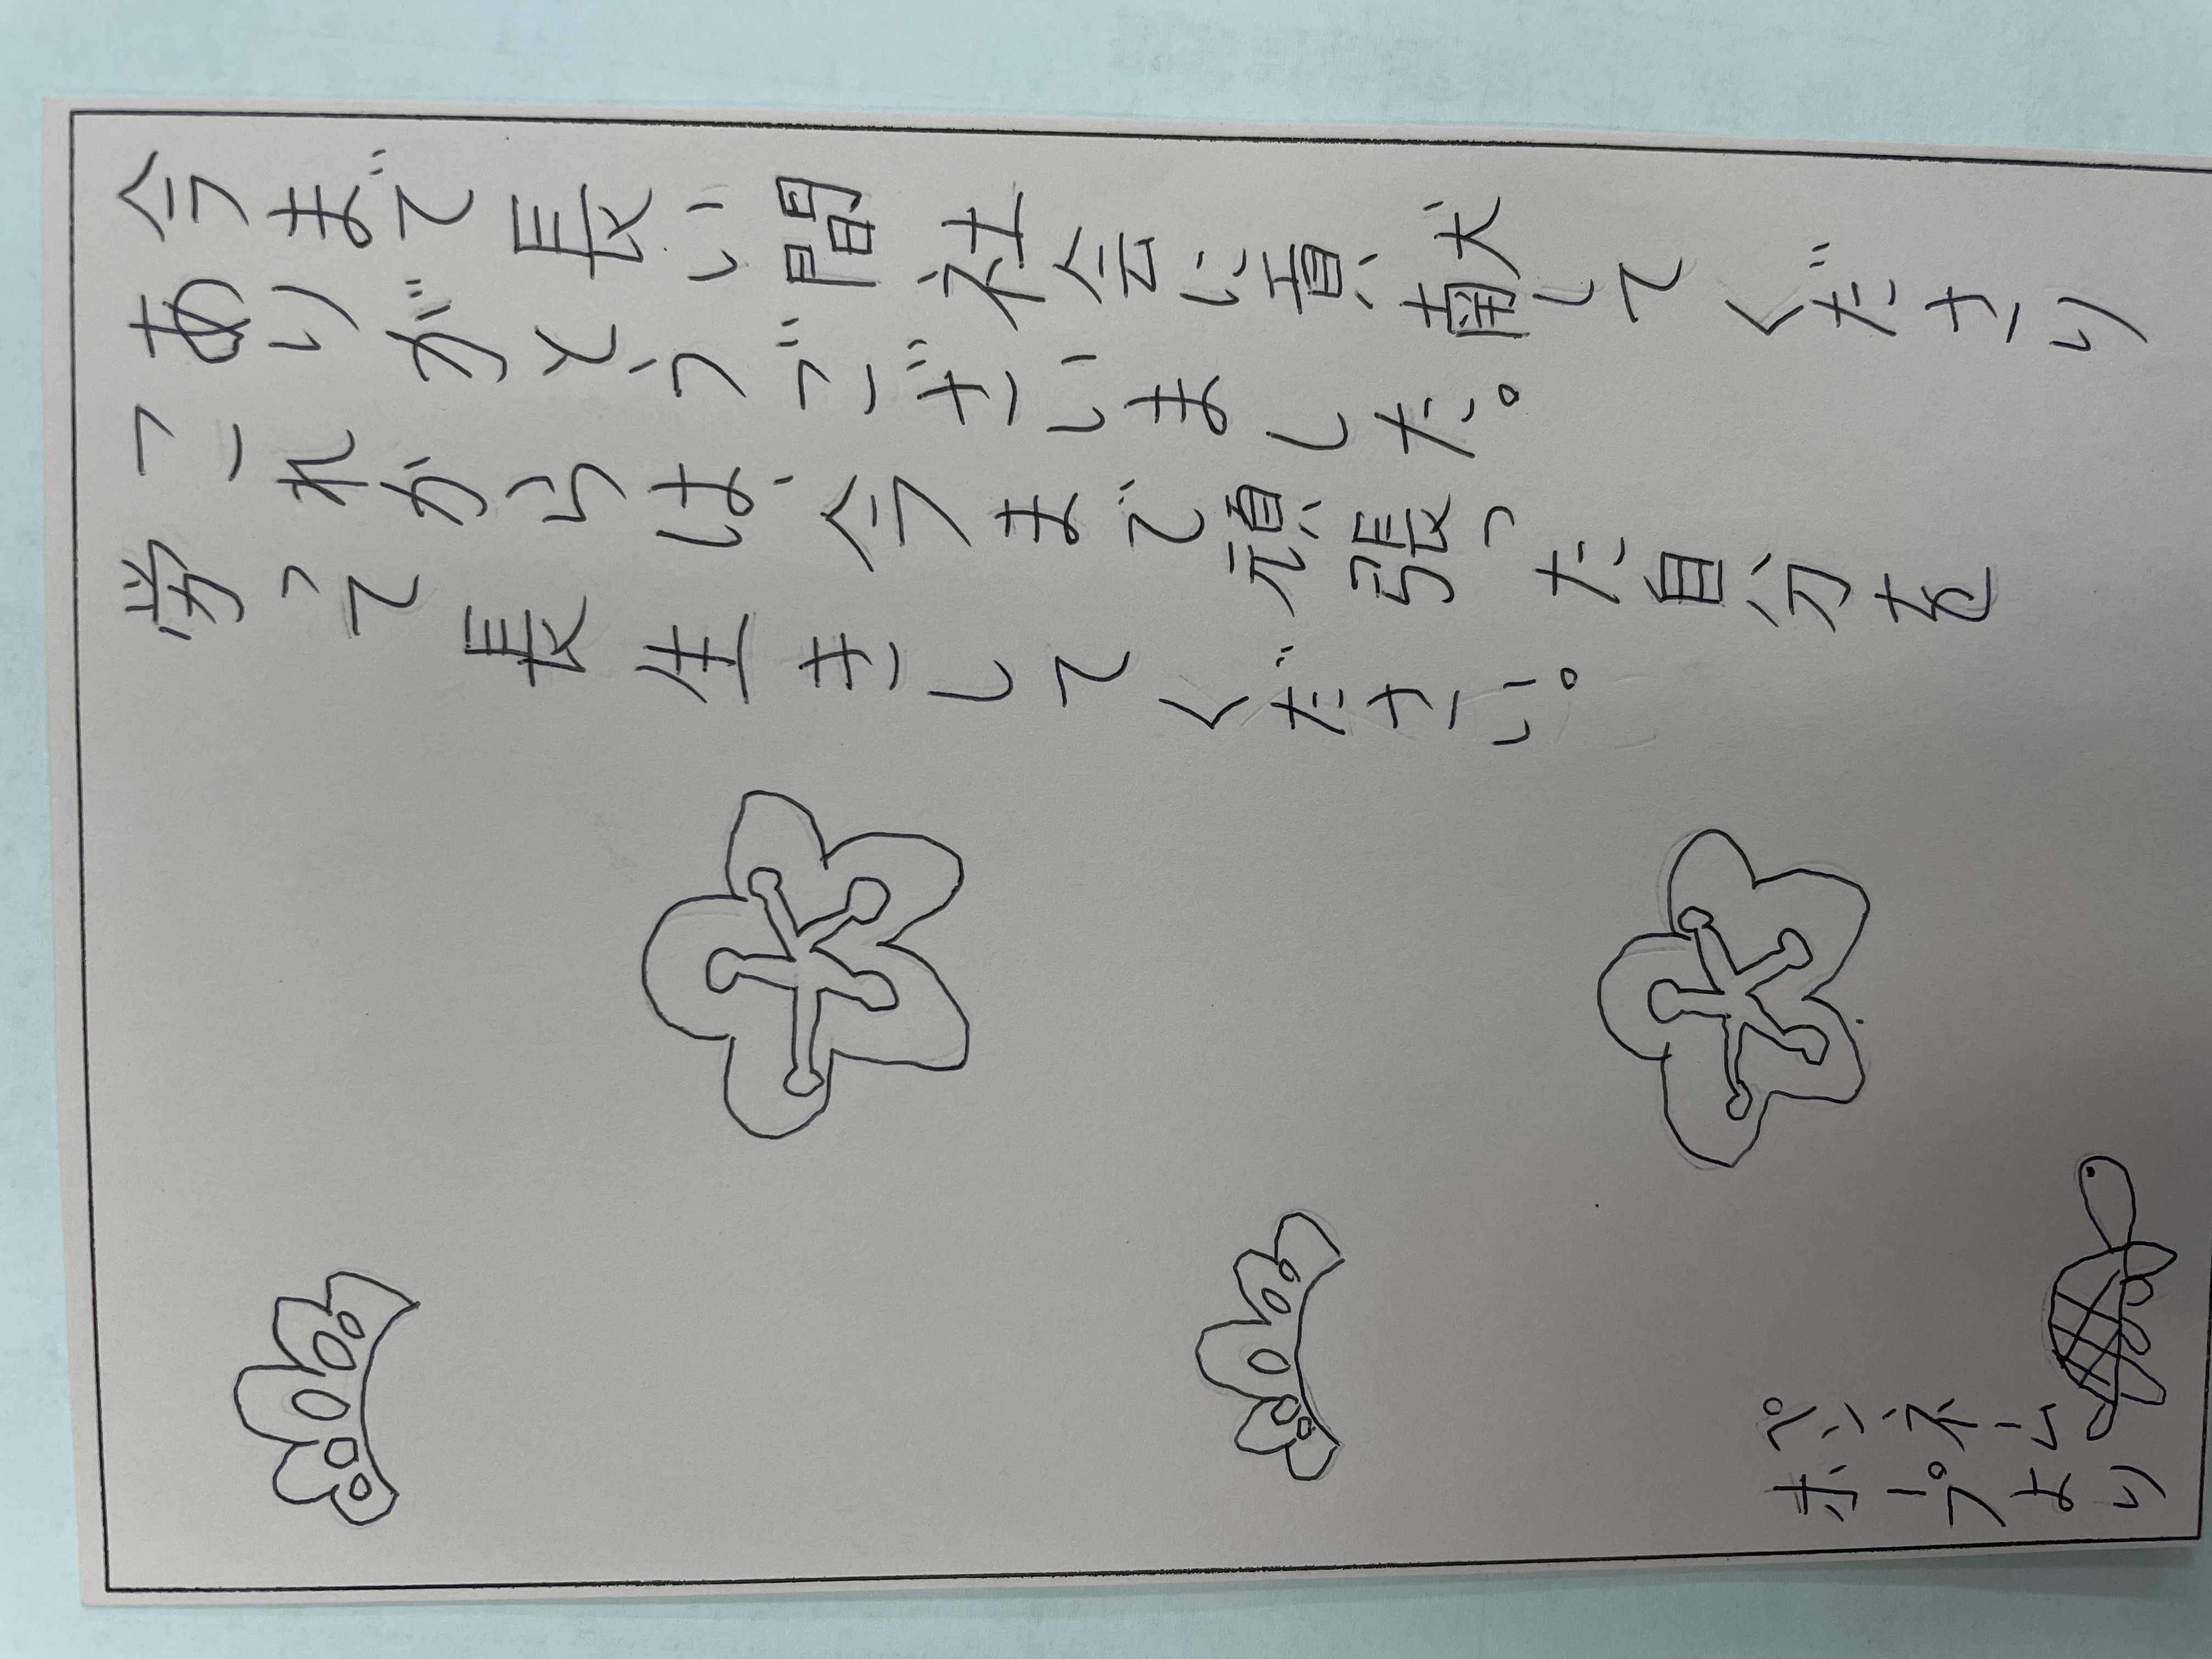 今まで長い間社会に貢献してくださり
ありがとうございました。
これからは、今まで頑張った自分を
労って長生きしてください。
ペンネーム
ホープより